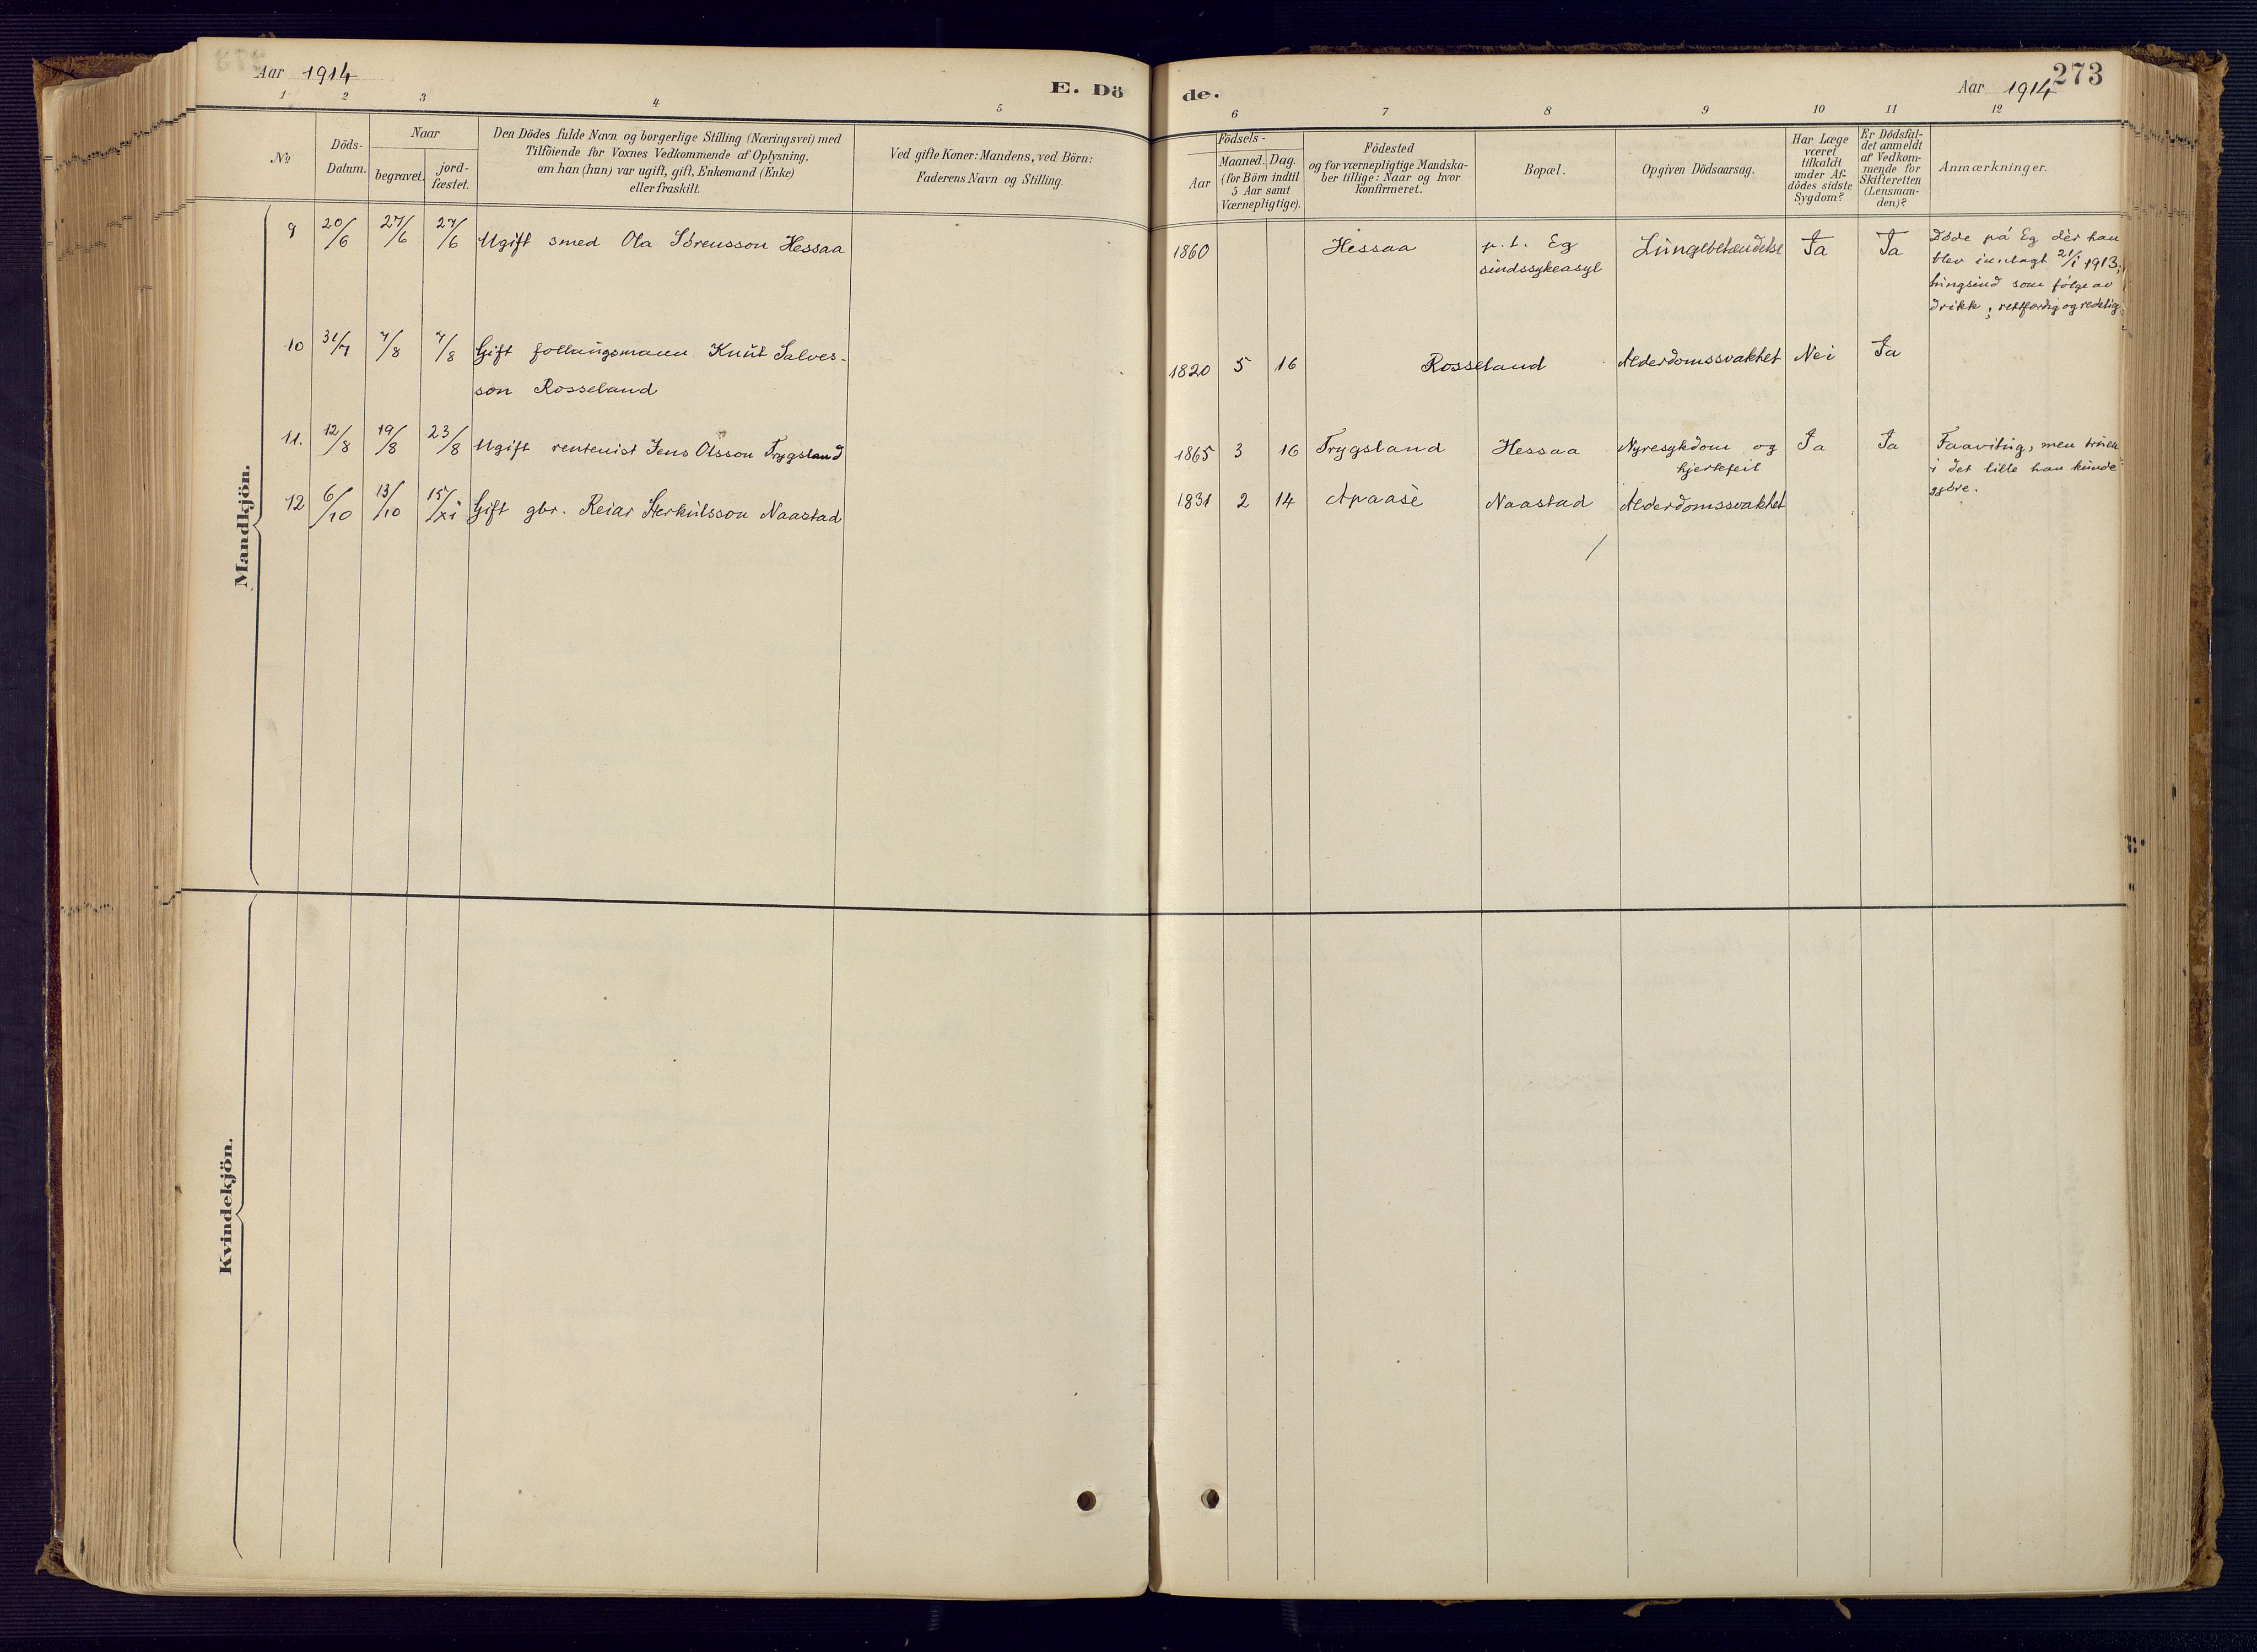 Aar 1914
E. Dö
1 2 3 4 5
No
Döds-
Datum.
Naar
begravet.
jord-
fæstet.
Den Dödes fulde Navn og borgerlige Stilling (Næringsvei) med
Tilföiende for Voxnes Vedkommende af Oplysning,
om han (hun) var ugift, gift, Enkemand (Enke)
eller fraskilt.
Ved gifte Koner: Mandens, ved Börn:
Faderens Navn og Stilling.
Mandkjön.
9 20/6 27/6 27/6 Ugift smed Ola Sörensson Hessaa
10 31/7 7/8 7/8 Gift follaugsmann Knut Salves-
son Rosseland
11. 12/8 19/8 23/8 Ugift rentenist Jens Olsson Trygsland
12 6/10 13/10 15/xi Gift gbr. Reiar Herkulsson Naastad
Kvindekjön.
de.
Aar 1914
273
6 7 8 9 10 11 12
Födsels-
Aar
Maaned. Dag.
(for Börn indtil
5 Aar samt
Værnepligtige).
Födested
og for værnepligtige Mandska-
ber tillige: Naar og hvor
konfirmeret.
Bopæl.
Opgiven Dödsaarsag.
Har Læge
været
tilkaldt
under Af-
dödes sidste
Sygdom?
Er Dödsfal-
det anmeldt
af Vedkom-
mende for
Skifteretten
(Lensman-
den)?
Anmærkninger.
1860 Hessaa p.t. Eg
sindssykeasyl
Lungebetændelse Ja Ja
Döde på Eg dèr han
blev innlagt 21/1 1913;
tungsind som fölge av
drikk; rettfærdig og redelig
1820 5 16 Rosseland Alderdomssvakhet Nei Ja
1865 3 16 Trygsland Hessaa Nyresykdom og
hjertefeil
Ja Ja
Faavitug, men truen
i det lille han kunde
gjöre.
1831 2 14 Apaasè Naastad Alderdomssvakhet